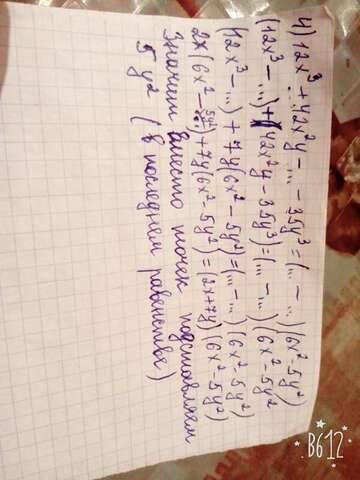 4) 12x³ + 42x²y - ... - 35y³ = (... - ...)(6x²-5y²)
(12x³ - ...) + (42x²y - 35y³) = (... - ...)(6x²-5y²
(12x³ - ...) + 7y(6x² - 5y²) = (... - ...)(6x²-5y²)
2x(6x² - 5y²) + 7y(6x² - 5y²) = (2x+7y)(6x²-5y²)
Значит вместо точек подставляем
5y² (в последнем равенстве)
B612